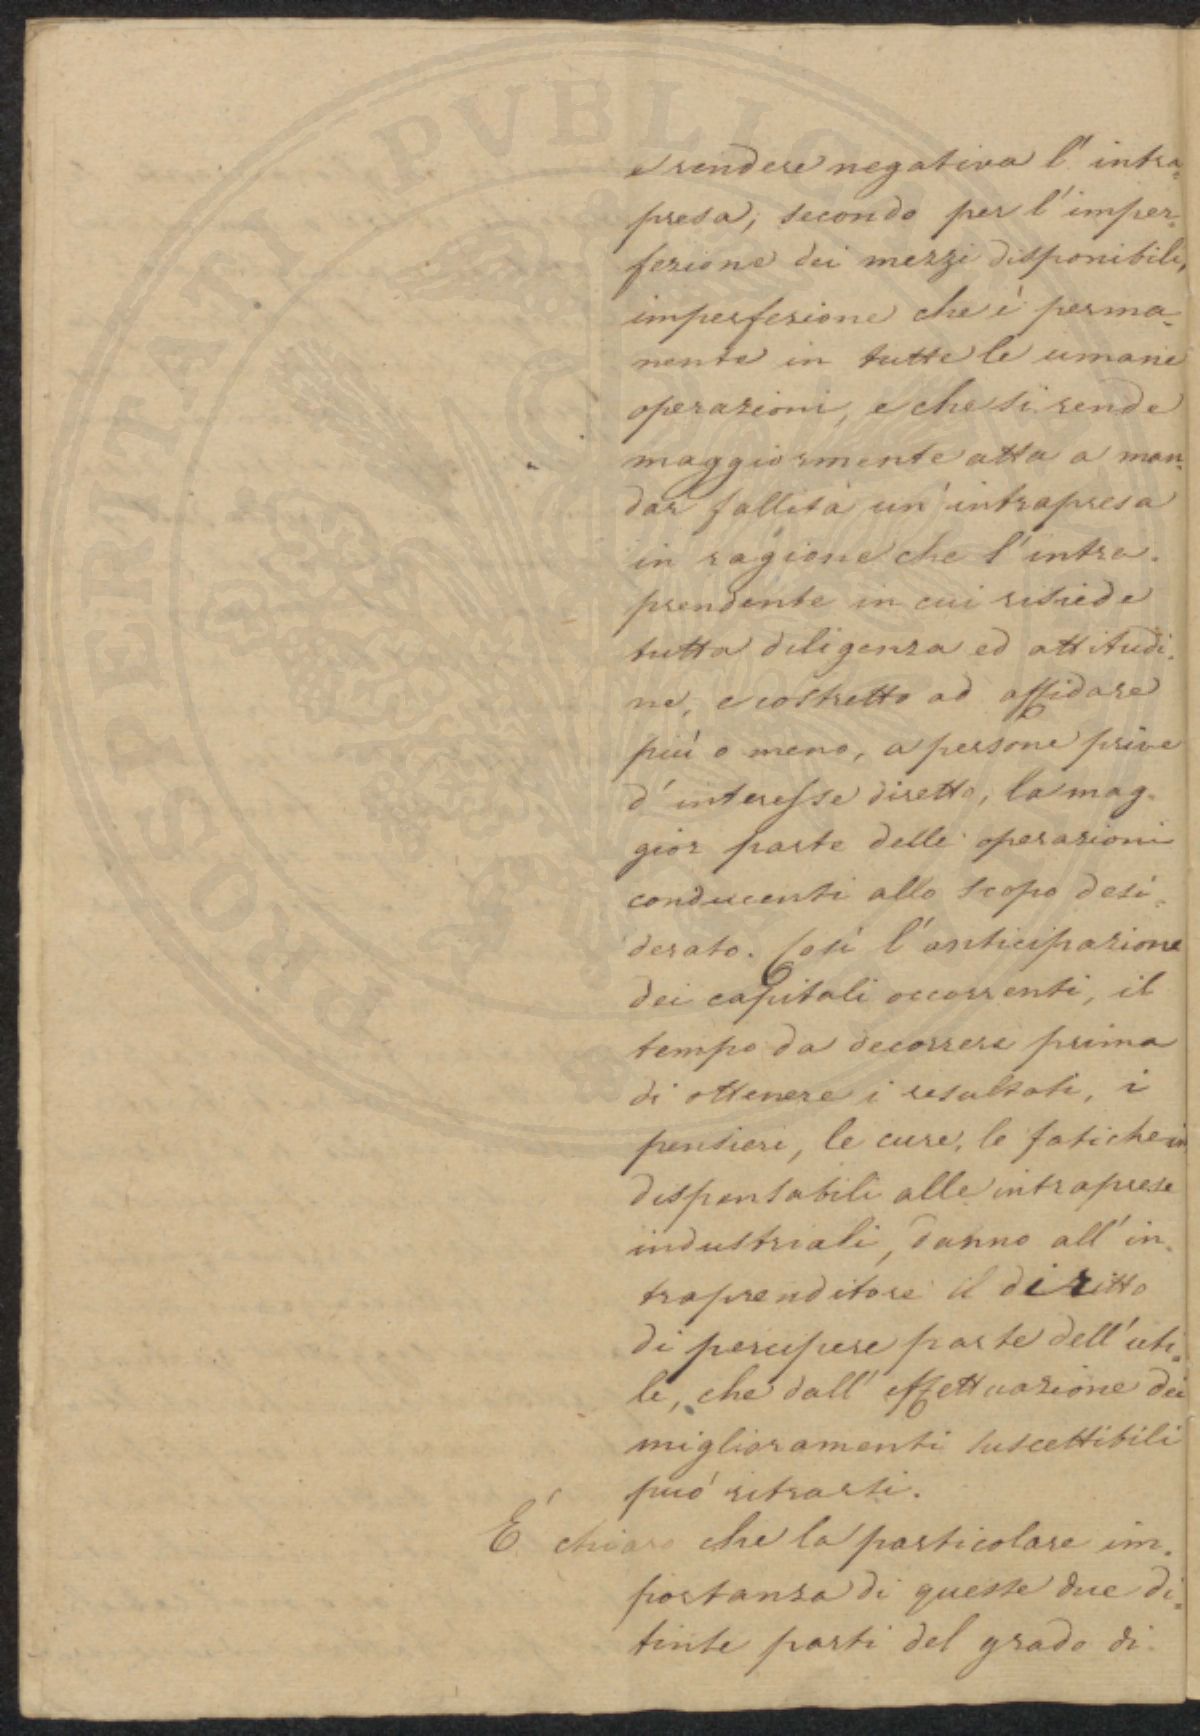 e rendere negativa l'intra-
presa; secondo per l'imper-
fezione dei mezzi disponibili,
imperfezione che è perma-
nente in tutte le umane
operazioni, e che si rende
maggiormente atta a man-
dar fallita un'intrapresa
in ragione che l'intra-
prendente in cui risiede
tutta diligenza ed attitudi-
ne, e costretto ad affidare
più o meno, a persone prive
d'interesse diretto, la mag-
gior parte delle operazioni
conducenti allo scopo desi-
derato. Così l'anticipazione
dei capitali occorrenti, il
tempo da decorrere prima
di ottenere i resultati, i
pensieri, le cure, le fatiche in
dispensabili alle intraprese
industriali, danno all'in-
traprenditore il diritto
di percipere parte dell'uti-
le, che dall'effettuazione dei
miglioramenti suscettibili
può ritrarsi.
È chiaro che la particolare im-
portanza di queste due di-
tinte parti del grado di
PROSPERITATI PVBLICAE